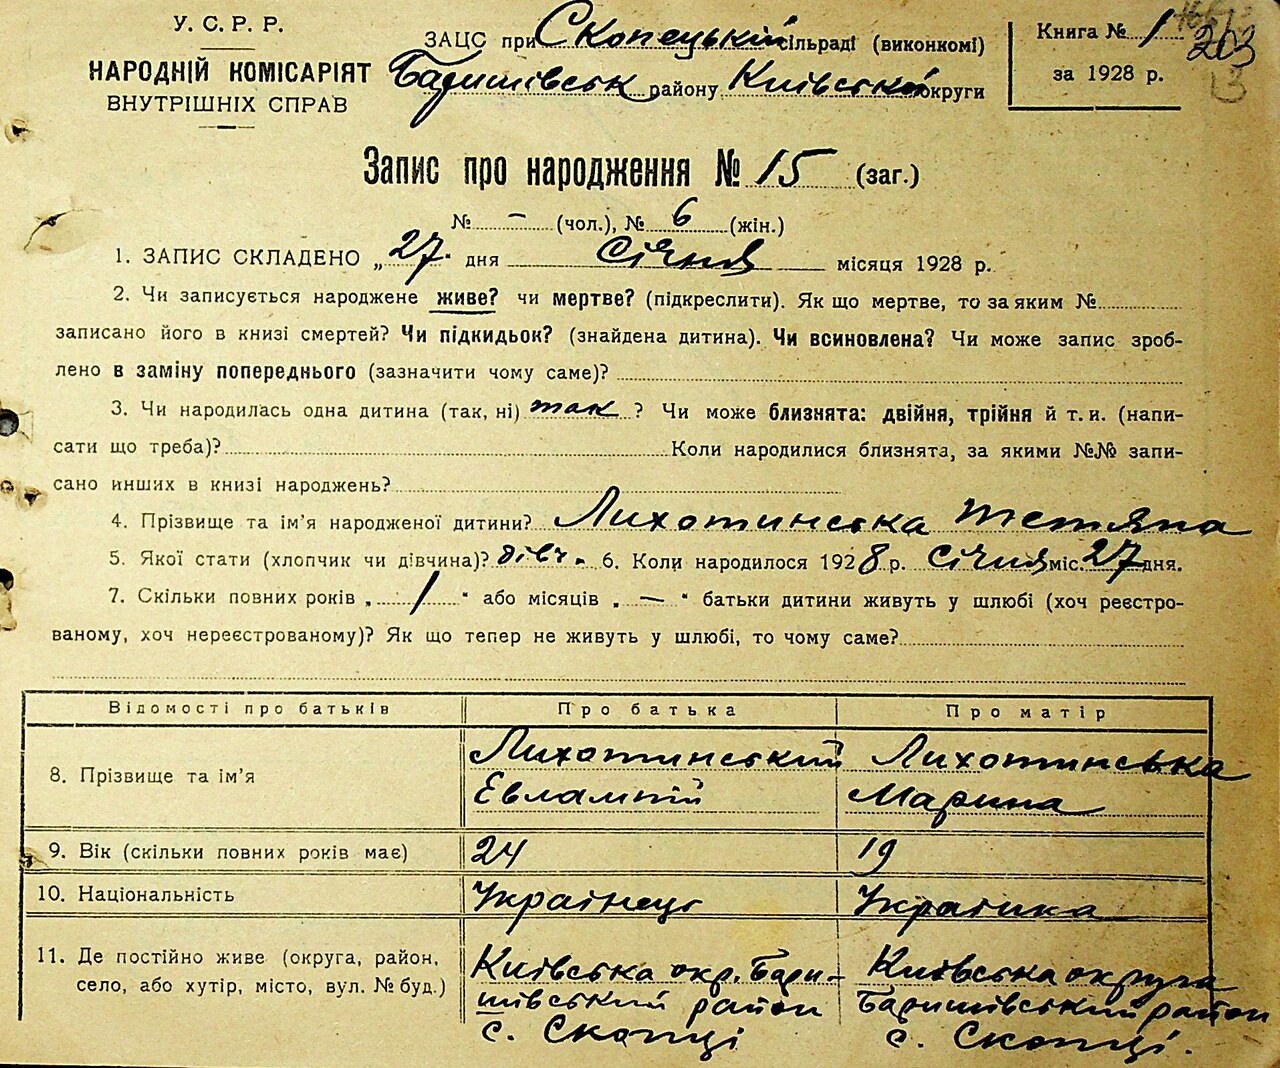 У. С. Р. Р.
НАРОДНІЙ КОМІСАРІЯТ
ВНУТРІШНІХ СПРАВ
ЗАЦС при Скопецькій сільраді (виконкомі)
Баришівськ району Київської округи
Книга № 1
за 1928 р.
203
Запис про народження № 15 (заг.)
№ – (чол.), № 6 (жін.)
1. ЗАПИС СКЛАДЕНО „27" дня січня місяця 1928 р.
2. Чи записується народжене живе? чи мертве? (підкреслити). Як що мертве, то за яким №
записано його в книзі смертей? Чи підкидьок? (знайдена дитина). Чи всиновлена? Чи може запис зроб-
лено в заміну попереднього (зазначити чому саме)?
3. Чи народилась одна дитина (так, ні) так ? Чи може близнята: двійня, трійня й т. и. (напи-
сати що треба)? Коли народилися близнята, за якими №№ запи-
сано инших в книзі народжень?
4. Прізвище та ім'я народженої дитини? Лихотинська Тетяна
5. Якої стати (хлопчик чи дівчина)? дівч. 6. Коли народилося 1928 р. січня міс. 27 дня.
7. Скільки повних років „ 1 " або місяців „ — " батьки дитини живуть у шлюбі (хоч реєстро-
ваному, хоч нереєстрованому)? Як що тепер не живуть у шлюбі, то чому саме?
Відомості про батьків Про батька Про матір
8. Прізвище та ім'я Лихотинський Евлампій Лихотинська Марина
9. Вік (скільки повних років має) 24 19
10. Національність Українець Українка
11. Де постійно живе (округа, район,
село, або хутір, місто, вул. № буд.)
Київська окр. Бари-
шівський район
с. Скопці
Київська округа
Баришівський район
с. Скопці.